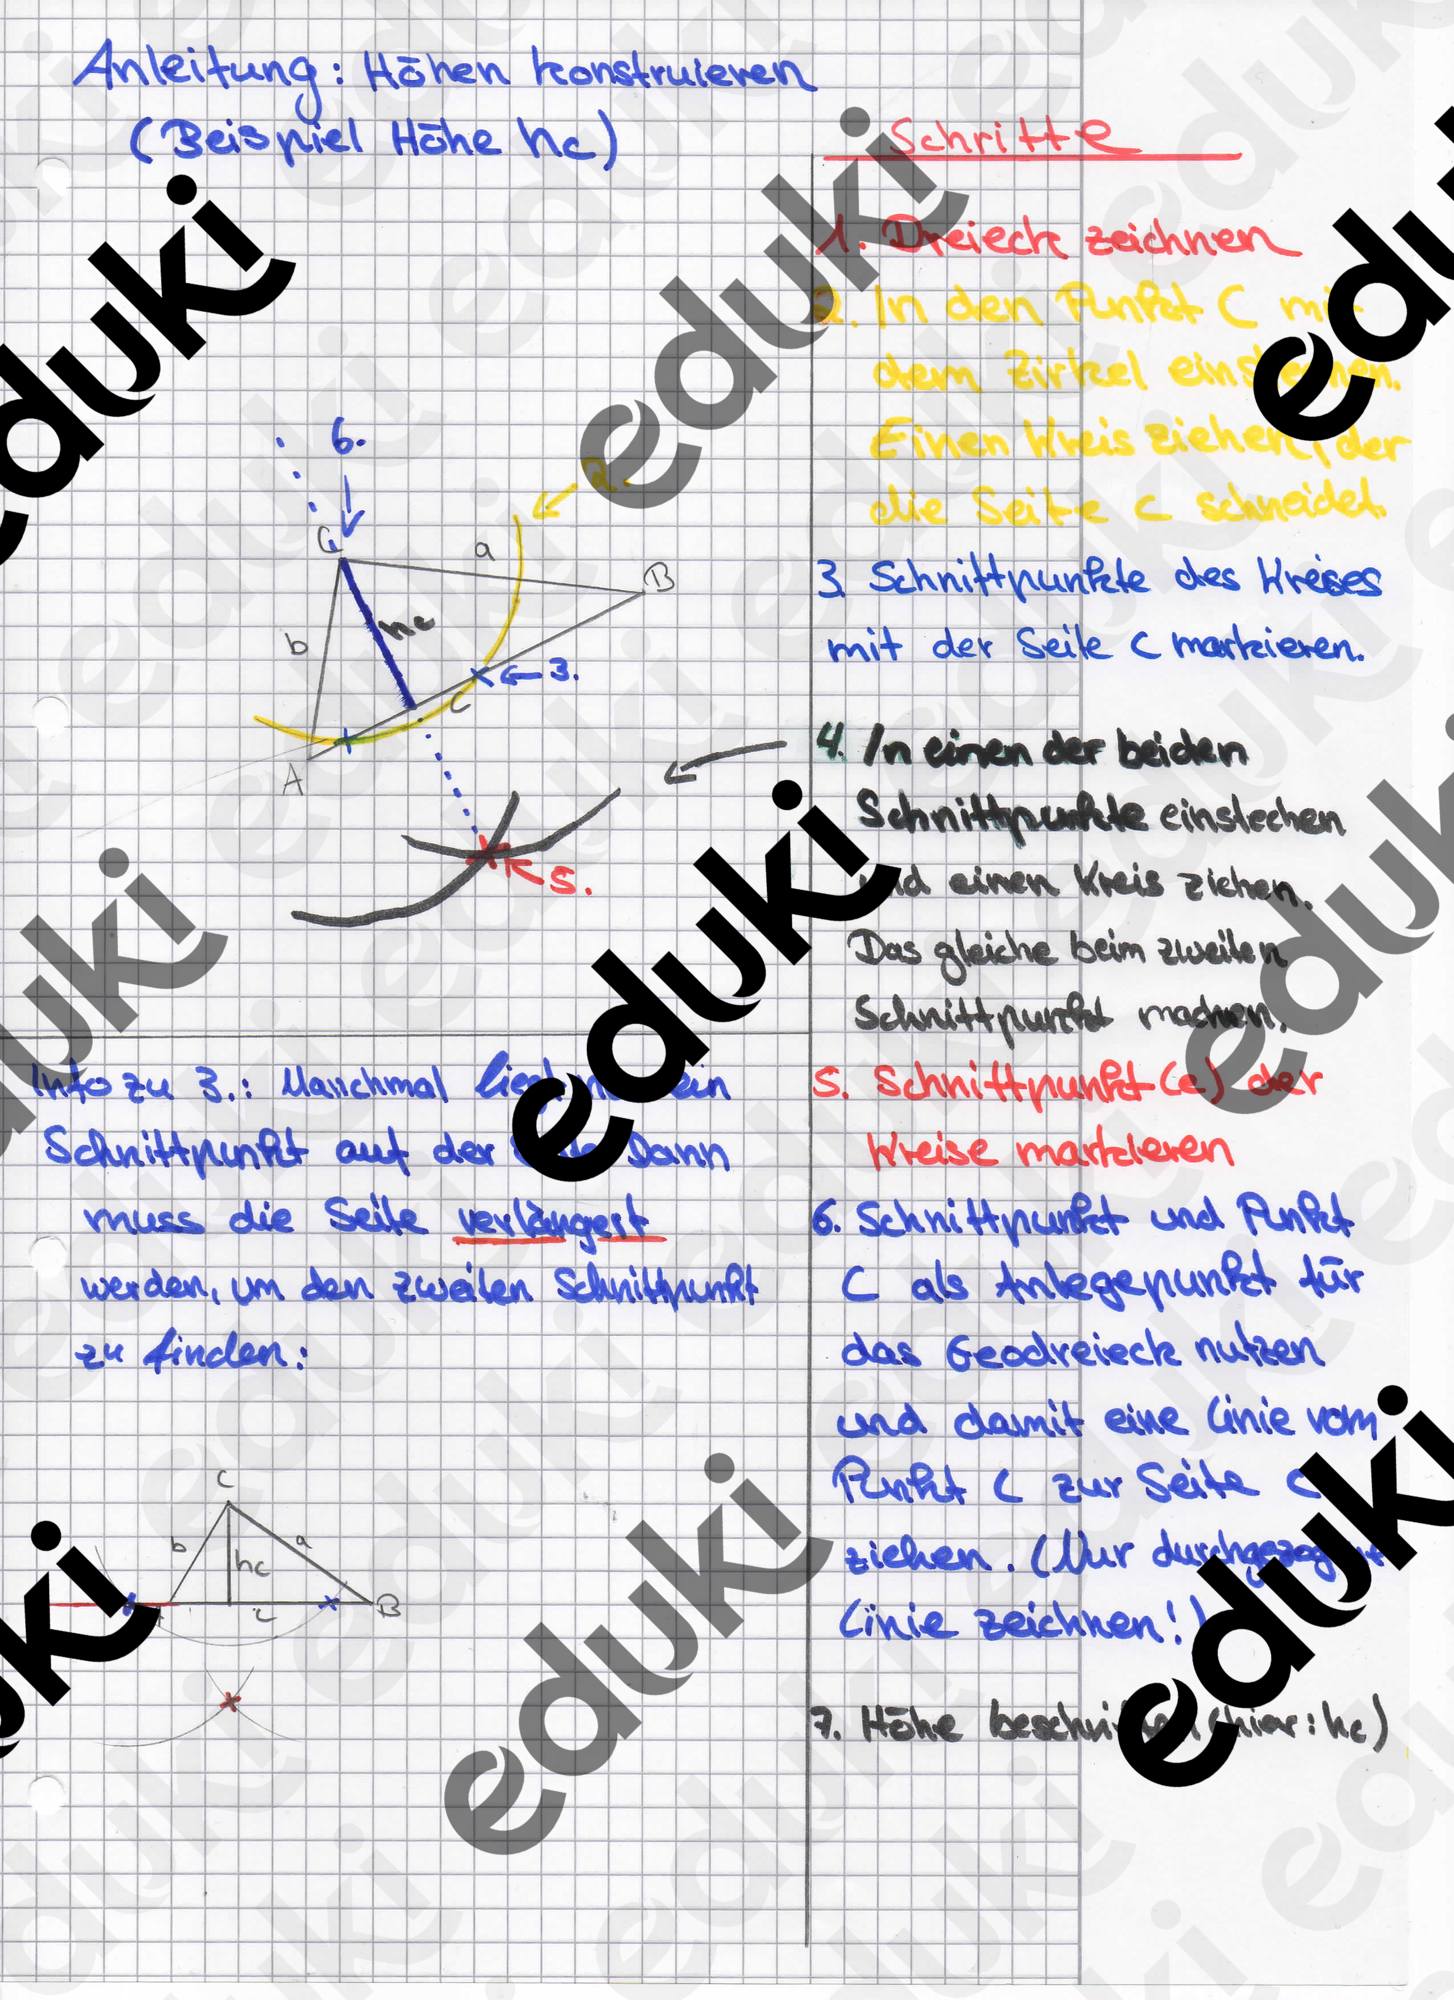 Anleitung: Höhen konstruieren
(Beispiel Höhe hc)
Schritte
1. Dreieck zeichnen
2. In den Punkt C mit
dem Zirkel einstechen.
Einen Kreis ziehen, der
die Seite c schneidet.
3. Schnittpunkte des Kreises
mit der Seite c markieren.
4. In einen der beiden
Schnittpunkte einstechen
und einen Kreis ziehen.
Das gleiche beim zweiten
Schnittpunkt machen.
5. Schnittpunkt(e) der
Kreise markieren
6. Schnittpunkt und Punkt
C als Anlegepunkt für
das Geodreieck nutzen
und damit eine Linie vom
Punkt C zur Seite c
ziehen. (Nur durchgezogene
Linie zeichnen!)
7. Höhe beschriften (hier: hc)
6.
2.
C
a
B
b
hc
3.
c
A
5.
Info zu 3.: Manchmal liegt nur ein
Schnittpunkt auf der Seite. Dann
muss die Seite verlängert
werden, um den zweiten Schnittpunkt
zu finden:
C
b
a
hc
c
B
eduki
eduki
eduki
eduki
eduki
eduki
eduki
eduki
eduki
eduki